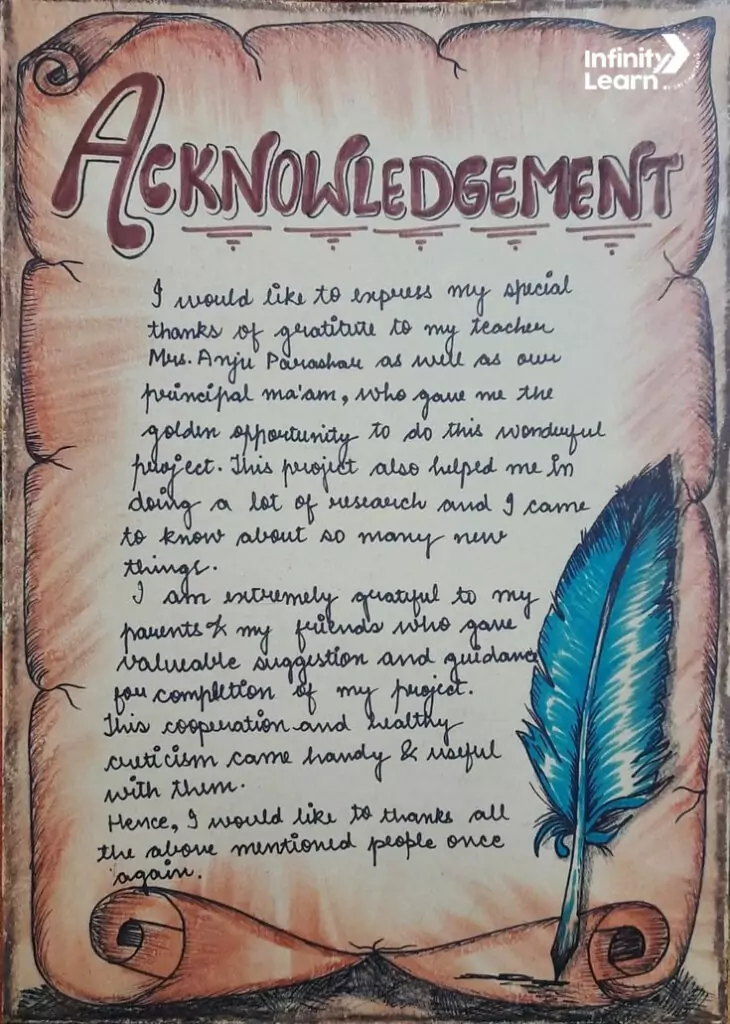 Infinity
Learn
ACKNOWLEDGEMENT
I would like to express my special
thanks of gratitute to my teacher
Mrs. Anju Parashar as well as our
principal ma'am, who gave me the
golden opportunity to do this wonderful
project. This project also helped me in
doing a lot of research and I came
to know about so many new
things.
I am extremely grateful to my
parents & my friends who gave
valueable suggestion and guidance
for completion of my project.
This cooperation and healthy
creticism came handy & useful
with them.
Hence, I would like to thanks all
the above mentioned people once
again.